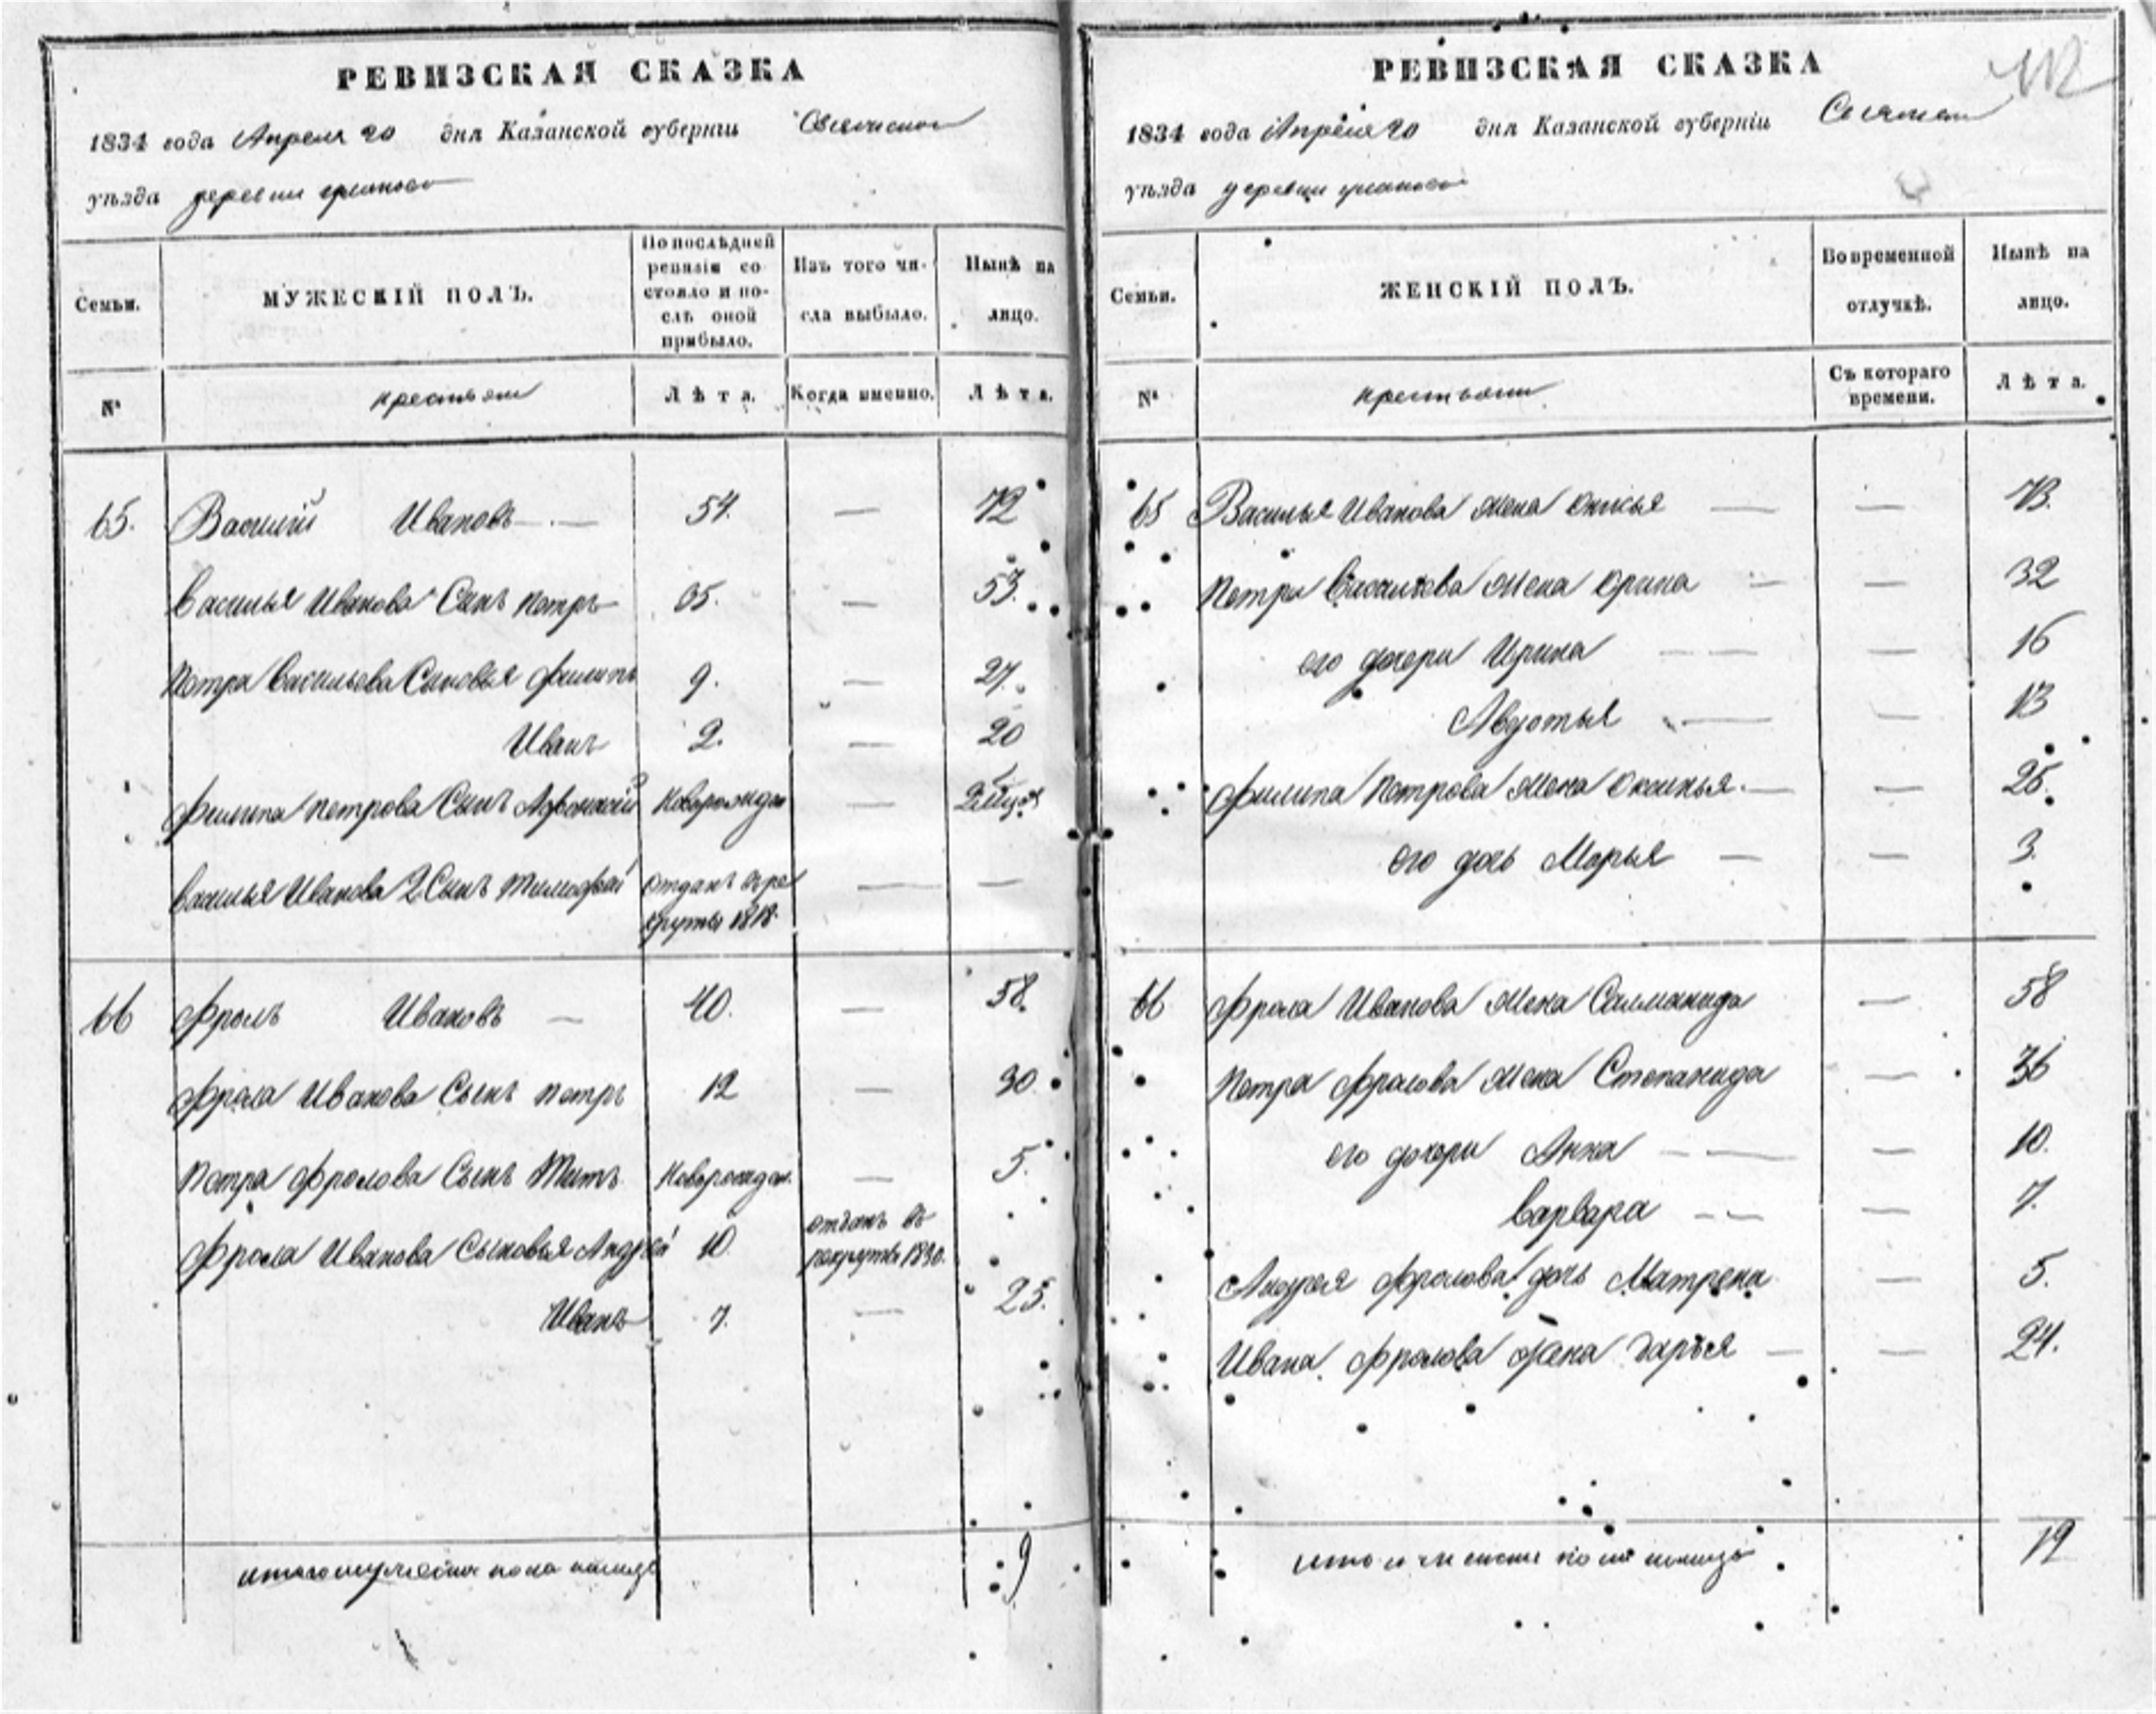 РЕВИЗСКАЯ СКАЗКА
1834 года Апреля 20 дня Казанской губерніи
уѣзда деревни
Семьи.
МУЖЕСКІЙ ПОЛЪ.
По послѣдней ревизіи состояло и послѣ оной прибыло.
Изъ того числа выбыло.
Нынѣ на лицо.
№
крестьяне
Лѣта.
Когда именно.
Лѣта.
65. Василий Ивановъ — 54. — 72
Василья Иванова Сынъ петръ 35. — 53.
Петра Васильева Сыновья филипъ 9. — 27.
Иванъ 2. — 20
филипа петрова Сынъ Новорожден —
Василья Иванова 2 Сынъ Тимофей отданъ в ре — —
круты 1818.
66 Фролъ Ивановъ — 40. — 58.
Фрола Иванова Сынъ петръ 12 — 30.
Петра Фролова Сынъ Титъ Новорожден. — 5.
Фрола Иванова Сыновья Андрей 10. отданъ въ
рекруты 1830.
Иванъ 7. — 25.
итого мужеска пола налицо 9
РЕВИЗСКАЯ СКАЗКА
1834 года Апреля 20 дня Казанской губерніи
уѣзда деревни
Семьи.
ЖЕНСКІЙ ПОЛЪ.
Во временной отлучкѣ.
Нынѣ на лицо.
№
крестьяне
Съ котораго времени.
Лѣта.
65 Василья Иванова жена — — 73.
Петра Васильева жена Орина — — 32
его дочери Ирина — — 16
Авдотья — — 13
Филипа Петрова жена Оксинья — — 25.
его дочь Марья — — 3.
66 Фрола Иванова жена — 58
Петра Фролова жена Степанида — 36
его дочери Анна — — 10.
Варвара — — 7.
Андрея Фролова дочь Матрена — 5.
Ивана Фролова жена Дарья — — 24.
12